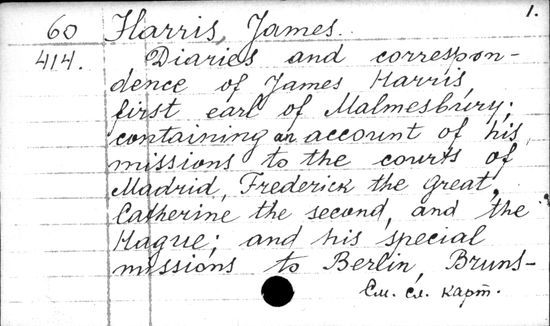 1.
60 Harris, James.
414. Diaries and correspon-
dence of James Harris,
first earl of Malmesbury;
containing an account of his
missions to the courts of
Madrid, Frederick the Great,
Catherine the second, and the
Hague; and his special
missions to Berlin, Bruns-
См. сл. карт.